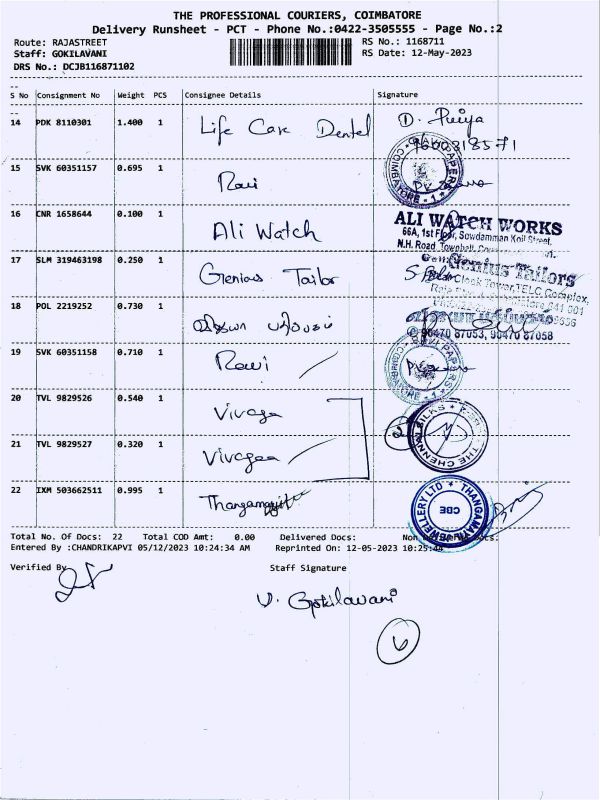 THE PROFESSIONAL COURIERS, COIMBATORE
Delivery Runsheet - PCT - Phone No.:0422-3505555 - Page No.:2
Route: RAJASTREET RS No.: 1168711
Staff: GOKILAVANI RS Date: 12-May-2023
DRS No.: DCJB116871102
S No Consignment No Weight PCS Consignee Details Signature
14 PDK 8110301 1.400 1 Life Care Dental
15 SVK 60351157 0.695 1 Ravi
16 CNR 1658644 0.100 1 Ali Watch
ALI WATCH WORKS
66A, 1st Floor, Sowdamman Koil Street,
N.H. Road, Townhall,
17 SLM 319463198 0.250 1 Genious Tailor
Genius Tailors
Clock Tower, TELC Complex,
18 POL 2219252 0.730 1
90470 87053, 90470 87058
19 SVK 60351158 0.710 1 Ravi
RAVI PAPERS
COIMBATORE - 1
20 TVL 9829526 0.540 1 Vivaga
21 TVL 9829527 0.320 1 Vivagaa
2
THE CHENNAI SILKS
22 IXM 503662511 0.995 1
CBE
Total No. Of Docs: 22 Total COD Amt: 0.00 Delivered Docs:
Entered By :CHANDRIKAPVI 05/12/2023 10:24:34 AM Reprinted On: 12-05-2023 10:25:44
Verified By Staff Signature
V. Gokilavani
6